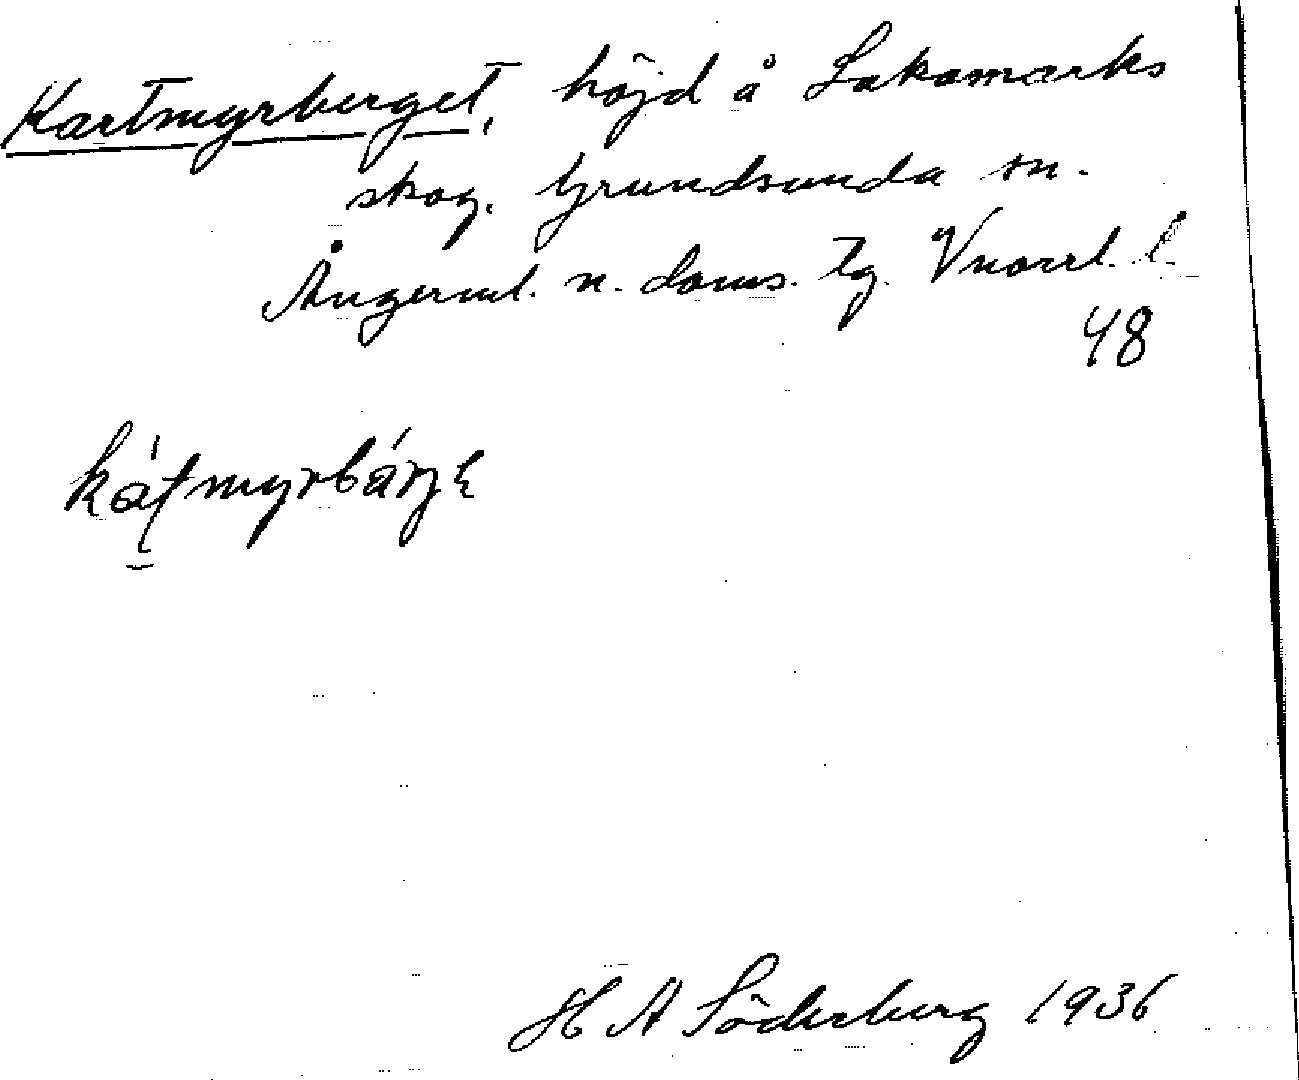 Kartmyrberget, höjd å Lakamarks
skog. Grundsunda sn.
Ångerml. n. doms. tg. Vnorrl. l.
48
H A Söderberg 1936